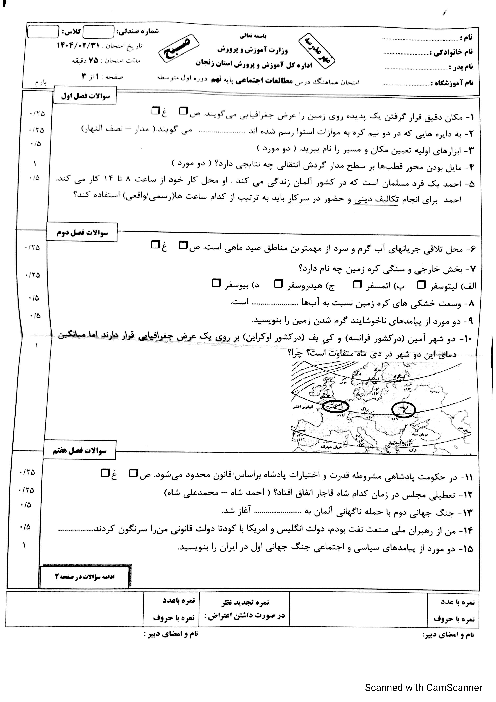 باسمه تعالی
وزارت آموزش و پرورش
اداره کل آموزش و پرورش استان زنجان
امتحان هماهنگ درس مطالعات اجتماعی پایه نهم دوره اول متوسطه
نام :
نام خانوادگی :
نام پدر :
نام آموزشگاه :
مهر مدرسه
صبح
شماره صندلی: کلاس:
تاریخ امتحان : ۱۴۰۴/۰۲/۳۱
مدت امتحان : ۷۵ دقیقه
صفحه : ۱ از ۳
سوالات فصل اول
۱- مکان دقیق قرار گرفتن یک پدیده روی زمین را عرض جغرافیایی می‌گویند. ص□ غ□ ۰/۲۵
۲- به دایره هایی که در دو نیم کره به موازات استوا رسم شده اند .................... می گویند ( مدار – نصف النهار) ۰/۲۵
۳- ابزارهای اولیه تعیین مکان و مسیر را نام ببرید. ( دو مورد ) ۰/۵
۴- مایل بودن محور قطب‌ها بر سطح مدار گردش انتقالی چه نتایجی دارد؟ ( دو مورد ) ۱
۵- احمد یک فرد مسلمان است که در کشور آلمان زندگی می کند . او محل کار خود از ساعت ۸ تا ۱۴ کار می کند. ۰/۵
احمد برای انجام تکالیف دینی و حضور در سرکار باید به ترتیب از کدام ساعت ها(رسمی/واقعی) استفاده کند؟
سوالات فصل دوم
۶- محل تلاقی جریانهای آب گرم و سرد از مهمترین مناطق صید ماهی است. ص□ غ□ ۰/۲۵
۷- بخش خارجی و سنگی کره زمین چه نام دارد؟ ۰/۲۵
الف) لیتوسفر □ ب) اتمسفر □ ج) هیدروسفر □ د) بیوسفر □
۸- وسعت خشکی های کره زمین نسبت به آب‌ها .................... است. ۰/۵
۹- دو مورد از پیامدهای ناخوشایند گرم شدن زمین را بنویسید. ۰/۵
۱۰- دو شهر آمین (درکشور فرانسه) و کی یف (درکشور اوکراین) بر روی یک عرض جغرافیایی قرار دارند اما میانگین ۱
دمای این دو شهر در دی ماه متفاوت است؟ چرا؟
سوالات فصل هفتم
۱۱- در حکومت پادشاهی مشروطه قدرت و اختیارات پادشاه براساس قانون محدود می‌شود. ص□ غ□ ۰/۲۵
۱۲- تعطیلی مجلس در زمان کدام شاه قاجار اتفاق افتاد؟ ( احمد شاه – محمدعلی شاه) ۰/۲۵
۱۳- جنگ جهانی دوم با حمله ناگهانی آلمان به .................... آغاز شد. ۰/۵
۱۴- من از رهبران ملی صنعت نفت بودم، دولت انگلیس و امریکا با کودتا دولت قانونی من‌را سرنگون کردند.................... ۰/۵
۱۵- دو مورد از پیامدهای سیاسی و اجتماعی جنگ جهانی اول در ایران را بنویسید. ۱
ادامه سؤالات در صفحه ۲
نمره با عدد
نمره با حروف
نمره تجدید نظر
در صورت داشتن اعتراض :
نمره باعدد
نمره با حروف
نام و امضای دبیر:
نام و امضای دبیر :
Scanned with CamScanner